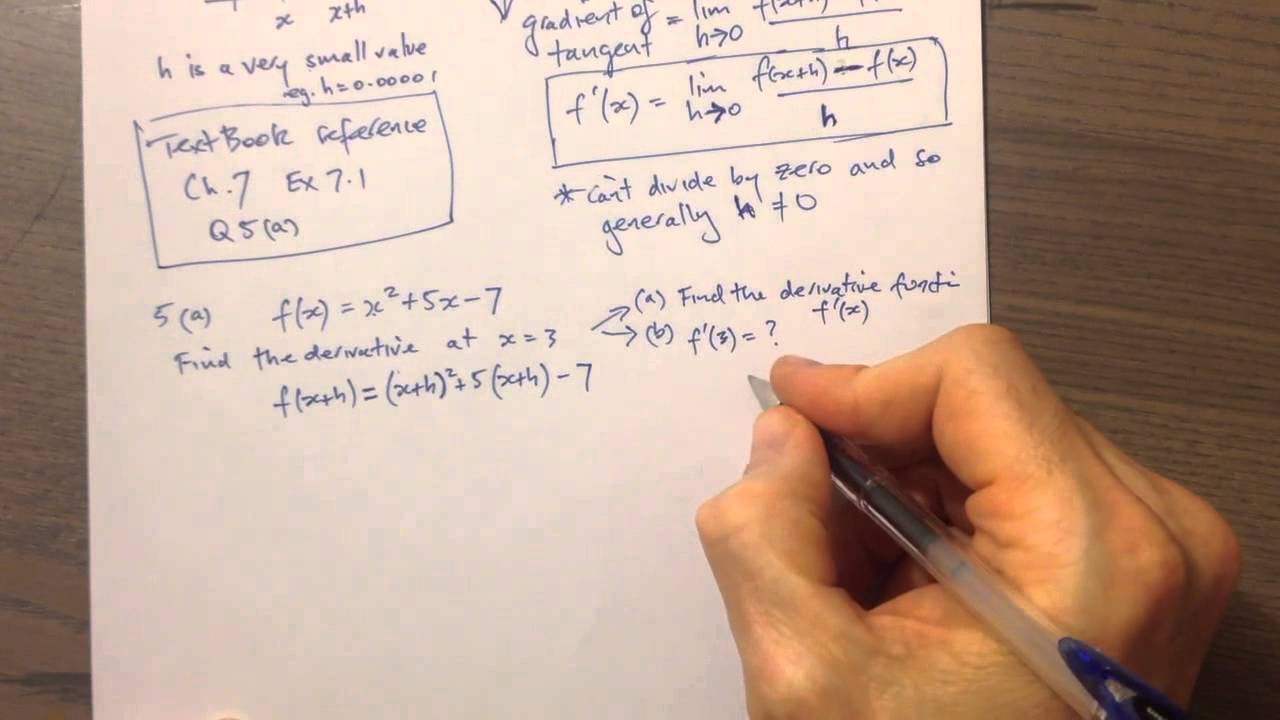 x x+h
h is a very small value
eg. h=0.00001
TextBook reference
Ch.7 Ex 7.1
Q5(a)
gradient of = lim
tangent h→0 h
f'(x) = lim f(x+h) - f(x)
h→0 h
* can't divide by zero and so
generally h ≠ 0
5(a) f(x) = x²+5x-7
Find the derivative at x = 3
(a) Find the derivative functi
f'(x)
(b) f'(3) = ?
f(x+h) = (x+h)²+5(x+h)-7